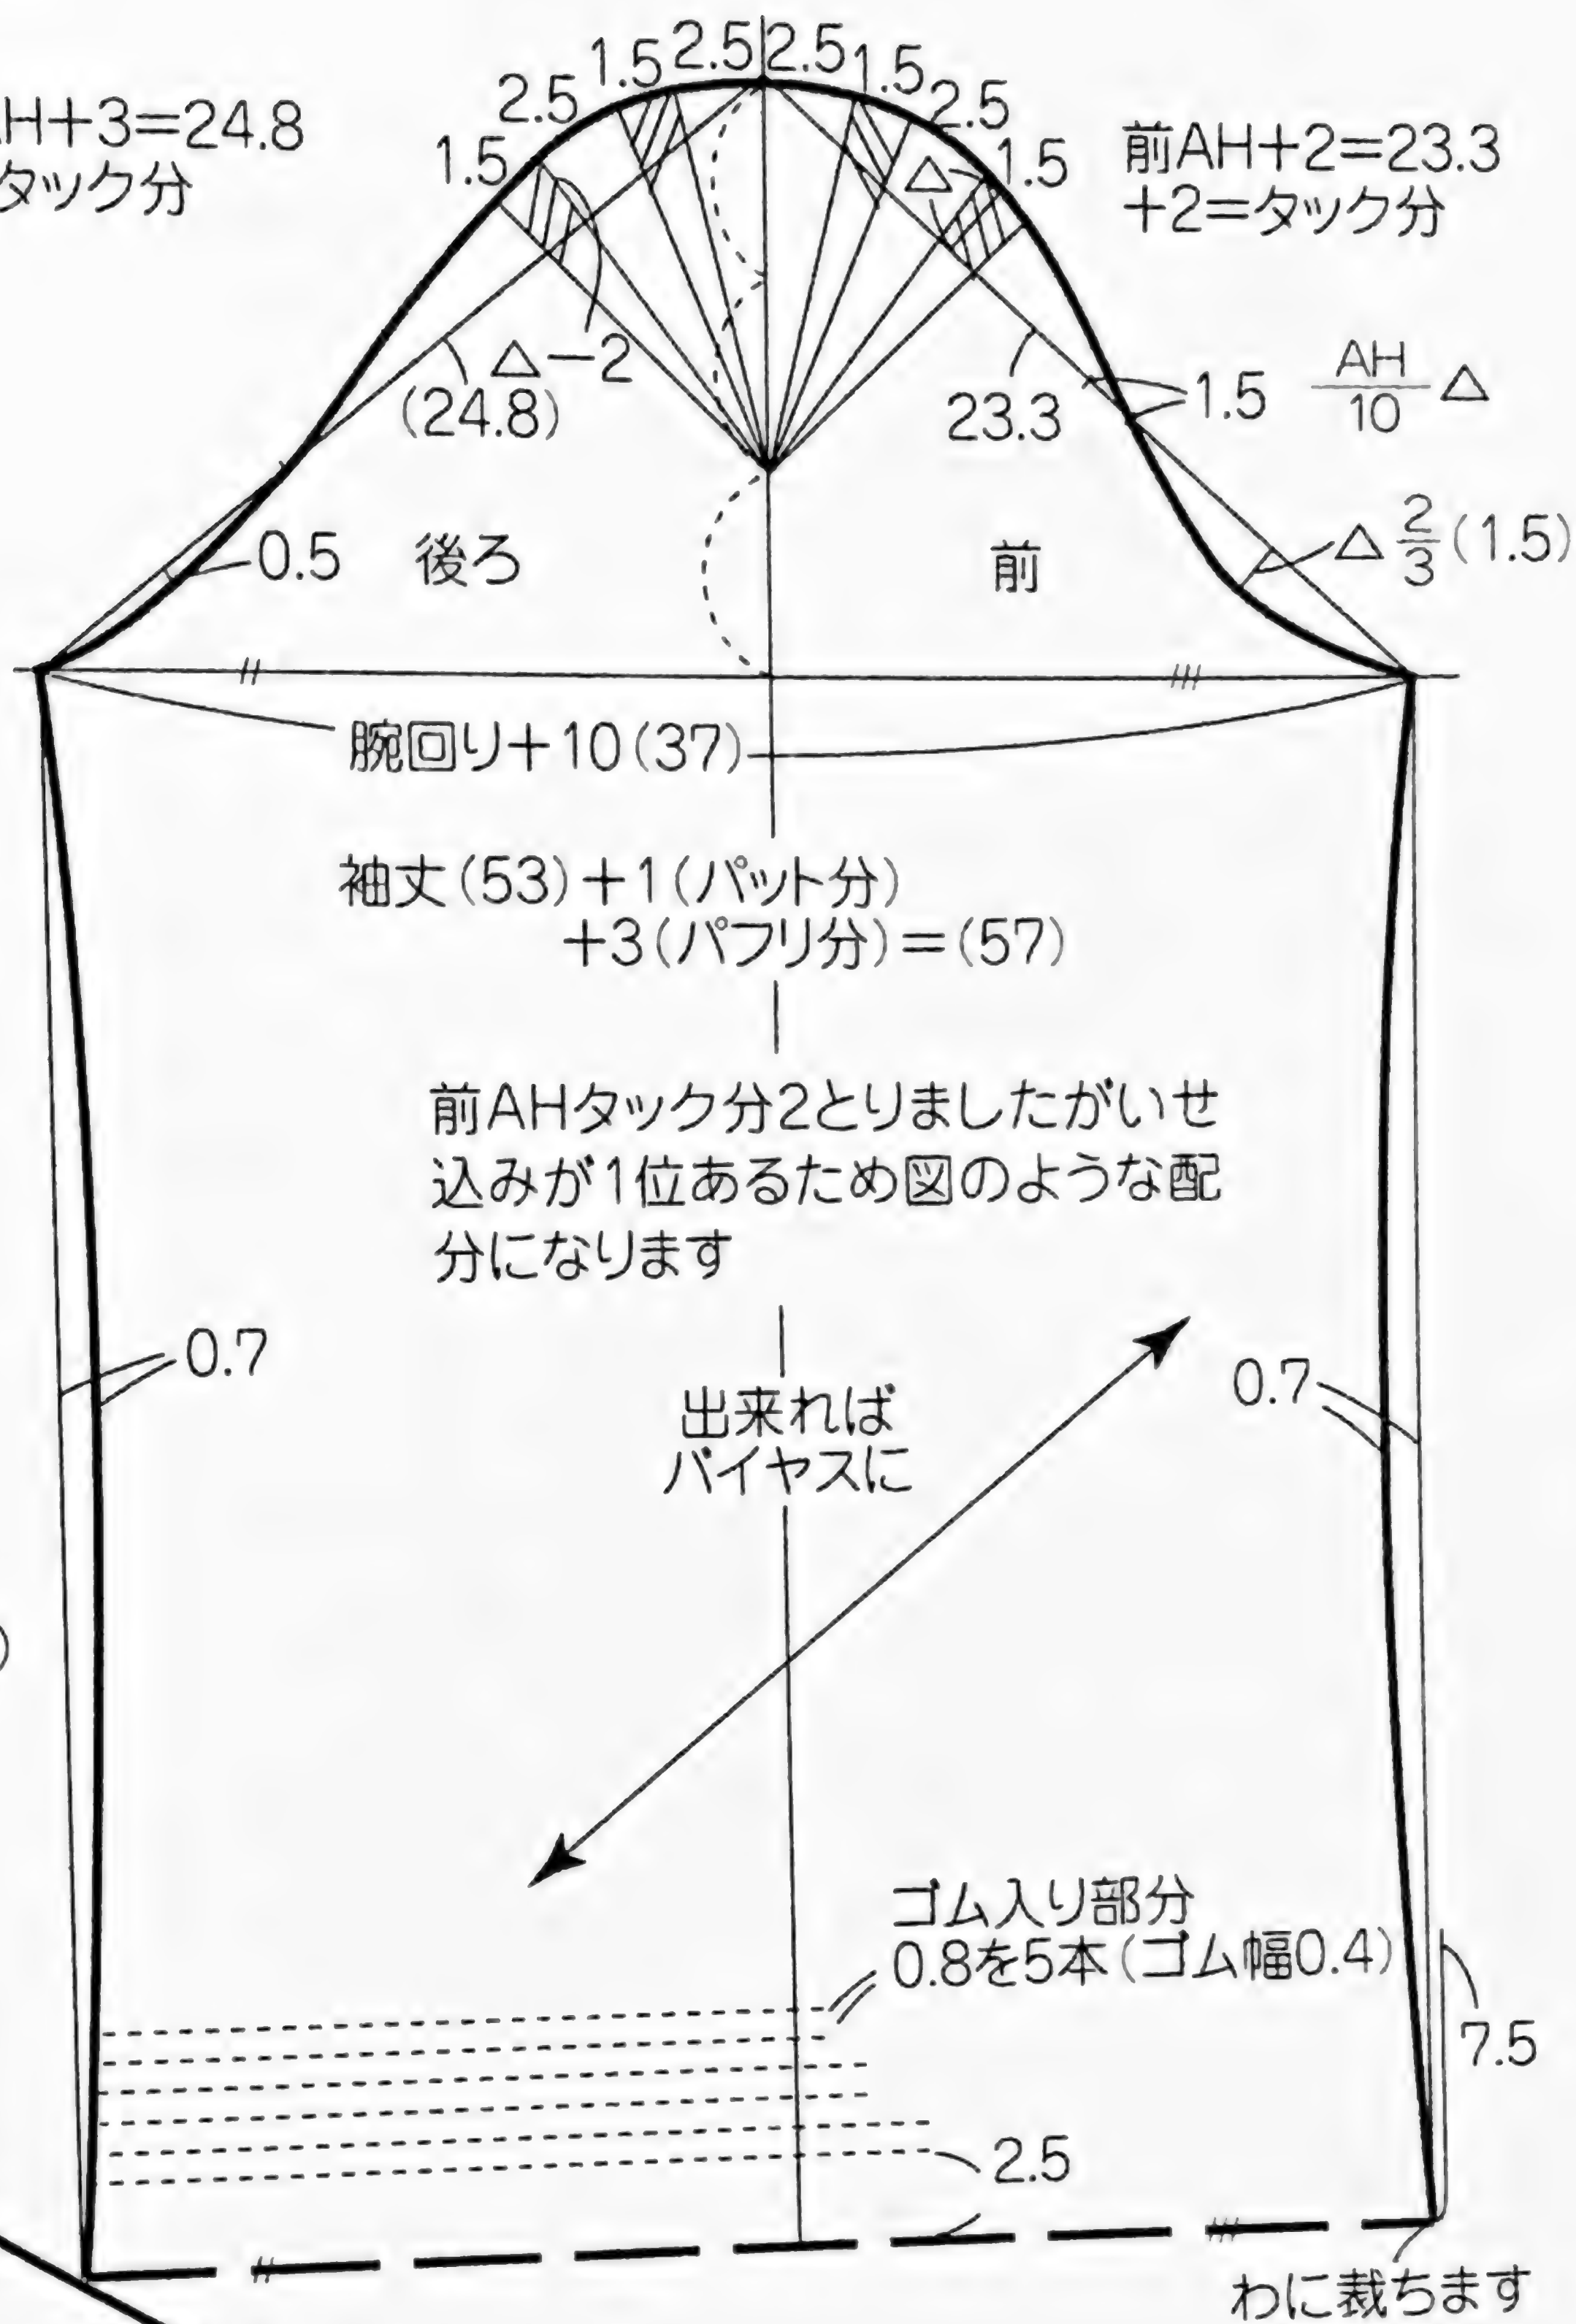 2.5
2.5
1.5
1.5
2.5
2.5
1.5
1.5
△
H+3=24.8
タック分
前AH+2=23.3
+2=タック分
△−2
(24.8)
23.3
1.5
AH/10 △
0.5
後ろ
前
△ 2/3 (1.5)
腕回り+10(37)
袖丈(53)+1(パット分)
+3(パフリ分)=(57)
前AHタック分2とりましたがいせ
込みが1位あるため図のような配
分になります
0.7
0.7
出来れば
バイヤスに
ゴム入り部分
0.8を5本(ゴム幅0.4)
7.5
2.5
わに裁ちます